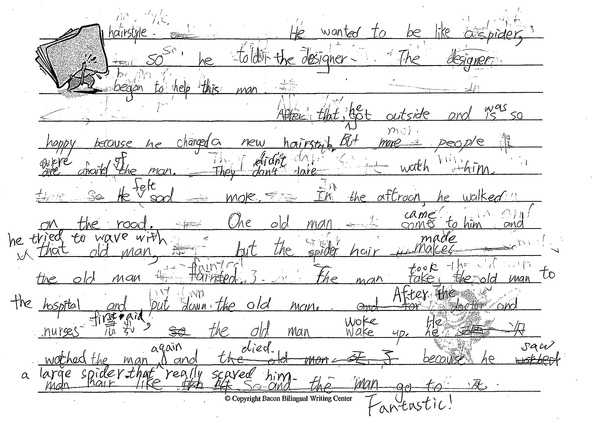 hairstyle. He wanted to be like a spider,
so he told the designer. The designer
began to help this man
After that, he got outside and was so
happy because he changed a new hairstyle. But more people
were afraid of the man. They didn't dare walk with him.
So He felt sad more. In the aftroon, he walked
on the road. One old man came to him and
he tried to wave with
that old man, but the spider hair made
the old man fainted. The man took the old man to
the hospital and put down the old man. After the doctor and
nurses first-aid, the old man woke up. He
watched the man again and died because he saw
a large spider that really scared him.
man hair like So and the man go to
Fantastic!
© Copyright Bacon Bilingual Writing Center